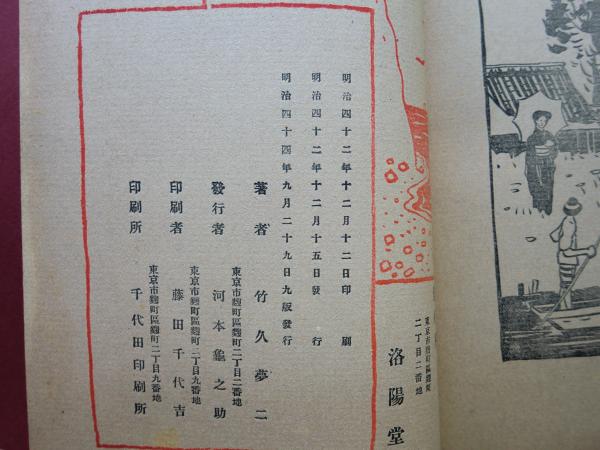 明治四十二年十二月十二日印刷
明治四十二年十二月十五日發行
明治四十四年九月二十九日九版發行
著者 竹久夢二
東京市麴町區麴町二丁目二番地
發行者 河本龜之助
東京市麴町區麴町二丁目九番地
印刷者 藤田千代吉
東京市麴町區麴町二丁目九番地
印刷所 千代田印刷所
東京市麴町區麴町
二丁目二番地
洛陽堂